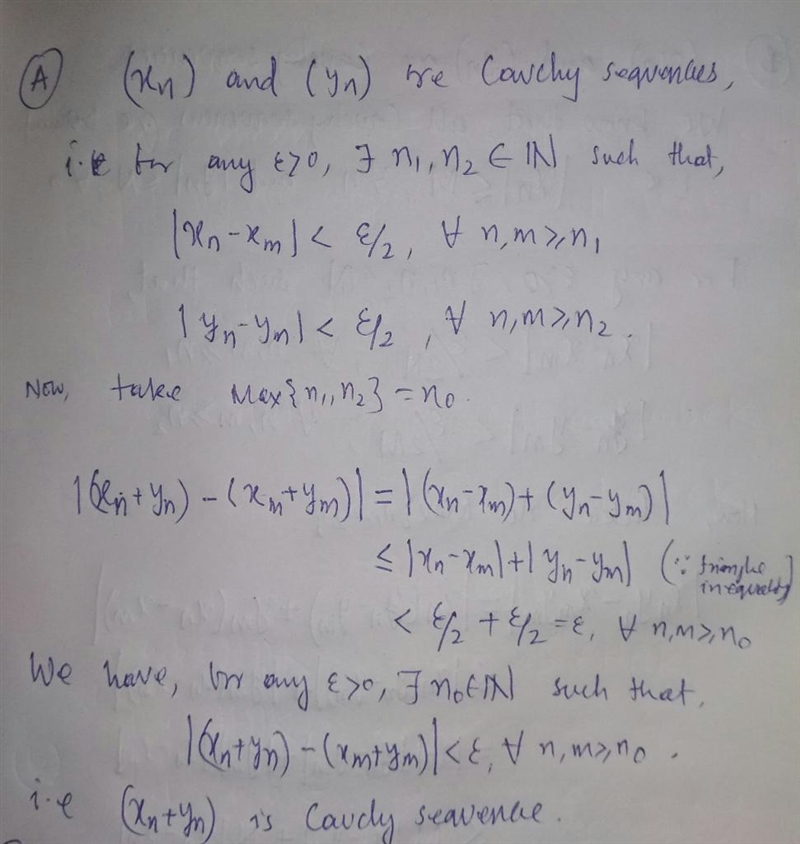 (A) (xn) and (yn) are Cauchy sequences,
i.e for any ε>0, ∃ n₁, n₂ ∈ ℕ such that,
|xn-xm| < ε/2, ∀ n,m≥n₁
|yn-ym| < ε/2, ∀ n,m≥n₂.
Now, take Max{n₁,n₂} = n₀.
|(xn+yn) - (xm+ym)| = |(xn-xm)+(yn-ym)|
≤ |xn-xm|+|yn-ym| (∵ triangle inequality)
< ε/2 + ε/2 = ε, ∀ n,m≥n₀
We have, for any ε>0, ∃ n₀∈ℕ such that,
|(xn+yn) - (xm+ym)| < ε, ∀ n,m≥n₀.
i.e (xn+yn) is Caucly sequence.